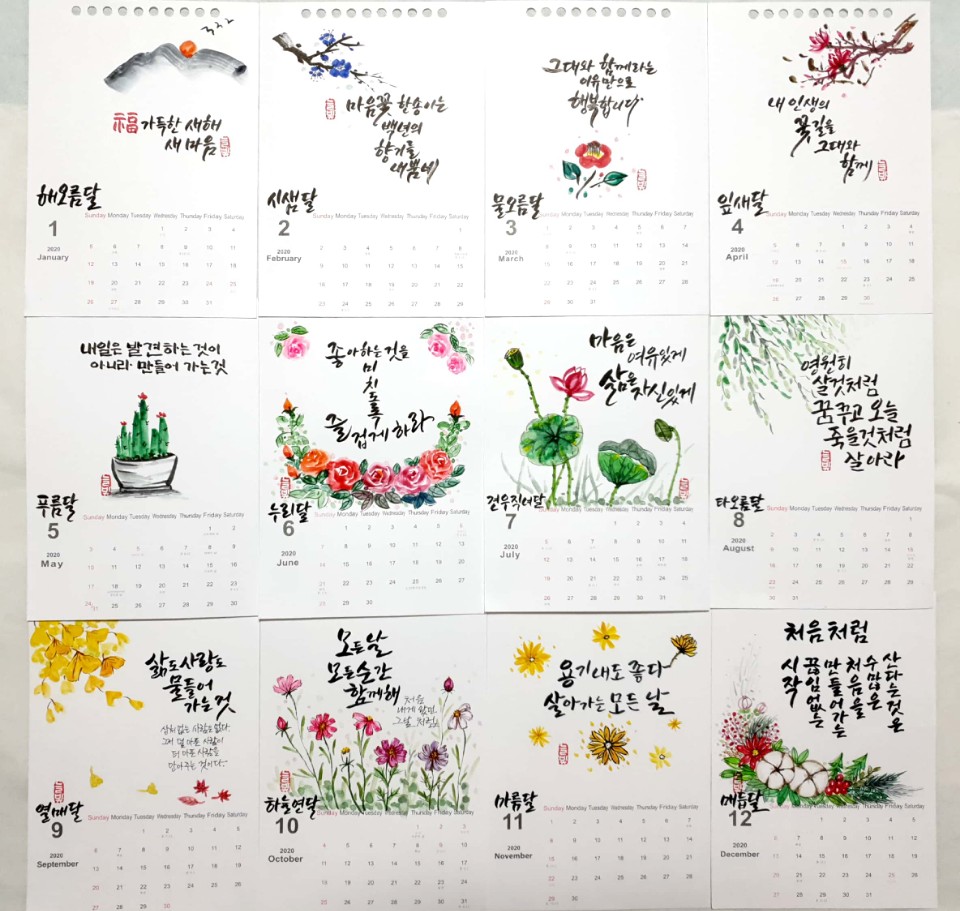 福 가득한 새해
새 마음
해오름달
Sunday Monday Tuesday Wednesday Thursday Friday Saturday
1
2020
January
1 2 3 4
5 6 7 8 9 10 11
12 13 14 15 16 17 18
19 20 21 22 23 24 25
26 27 28 29 30 31
마음꽃 한송이는
백년의
향기를
내뿜네
시샘달
Sunday Monday Tuesday Wednesday Thursday Friday Saturday
2
2020
February
1
2 3 4 5 6 7 8
9 10 11 12 13 14 15
16 17 18 19 20 21 22
23 24 25 26 27 28 29
그대와 함께라는
이유만으로
행복합니다
물오름달
Sunday Monday Tuesday Wednesday Thursday Friday Saturday
3
2020
March
1 2 3 4 5 6 7
8 9 10 11 12 13 14
15 16 17 18 19 20 21
22 23 24 25 26 27 28
29 30 31
내 인생의
꽃길을
그대와
함께
잎새달
Sunday Monday Tuesday Wednesday Thursday Friday Saturday
4
2020
April
1 2 3 4
5 6 7 8 9 10 11
12 13 14 15 16 17 18
19 20 21 22 23 24 25
26 27 28 29 30
내일은 발견하는것이
아니라 만들어 가는것
푸름달
Sunday Monday Tuesday Wednesday Thursday Friday Saturday
5
2020
May
1 2
3 4 5 6 7 8 9
10 11 12 13 14 15 16
17 18 19 20 21 22 23
24/31 25 26 27 28 29 30
좋아하는것을
미치도록
즐겁게 하라
누리달
Sunday Monday Tuesday Wednesday Thursday Friday Saturday
6
2020
June
1 2 3 4 5 6
7 8 9 10 11 12 13
14 15 16 17 18 19 20
21 22 23 24 25 26 27
28 29 30
마음은
여유있게
삶은 자신있게
견우직녀달
Sunday Monday Tuesday Wednesday Thursday Friday Saturday
7
2020
July
1 2 3 4
5 6 7 8 9 10 11
12 13 14 15 16 17 18
19 20 21 22 23 24 25
26 27 28 29 30 31
영원히
살것처럼
꿈꾸고 오늘
죽을것처럼
살아라
타오름달
Sunday Monday Tuesday Wednesday Thursday Friday Saturday
8
2020
August
1
2 3 4 5 6 7 8
9 10 11 12 13 14 15
16 17 18 19 20 21 22
23 24 25 26 27 28 29
삶도 사랑도
물들어
가는것
상처없는 사람은 없다.
그저 덜 아픈 사람이
더 아픈 사람을
안아주는 것이다~
열매달
Sunday Monday Tuesday Wednesday Thursday Friday Saturday
9
2020
September
1 2 3 4 5
6 7 8 9 10 11 12
13 14 15 16 17 18 19
20 21 22 23 24 25 26
27 28 29 30
모든날
모든순간
함께해
처음
내게 왔던
그날 처럼
하늘연달
Sunday Monday Tuesday Wednesday Thursday Friday Saturday
10
2020
October
1 2 3
4 5 6 7 8 9 10
11 12 13 14 15 16 17
18 19 20 21 22 23 24
25 26 27 28 29 30 31
용기내도 좋다
살아가는 모든 날
마름달
Sunday Monday Tuesday Wednesday Thursday Friday Saturday
11
2020
November
1 2 3 4 5 6 7
8 9 10 11 12 13 14
15 16 17 18 19 20 21
22 23 24 25 26 27 28
29 30
처음처럼
산다는것은
수많은
처음을
만들어가는
끊임없는
시작
매듭달
Sunday Monday Tuesday Wednesday Thursday Friday Saturday
12
2020
December
1 2 3 4 5
6 7 8 9 10 11 12
13 14 15 16 17 18 19
20 21 22 23 24 25 26
27 28 29 30 31